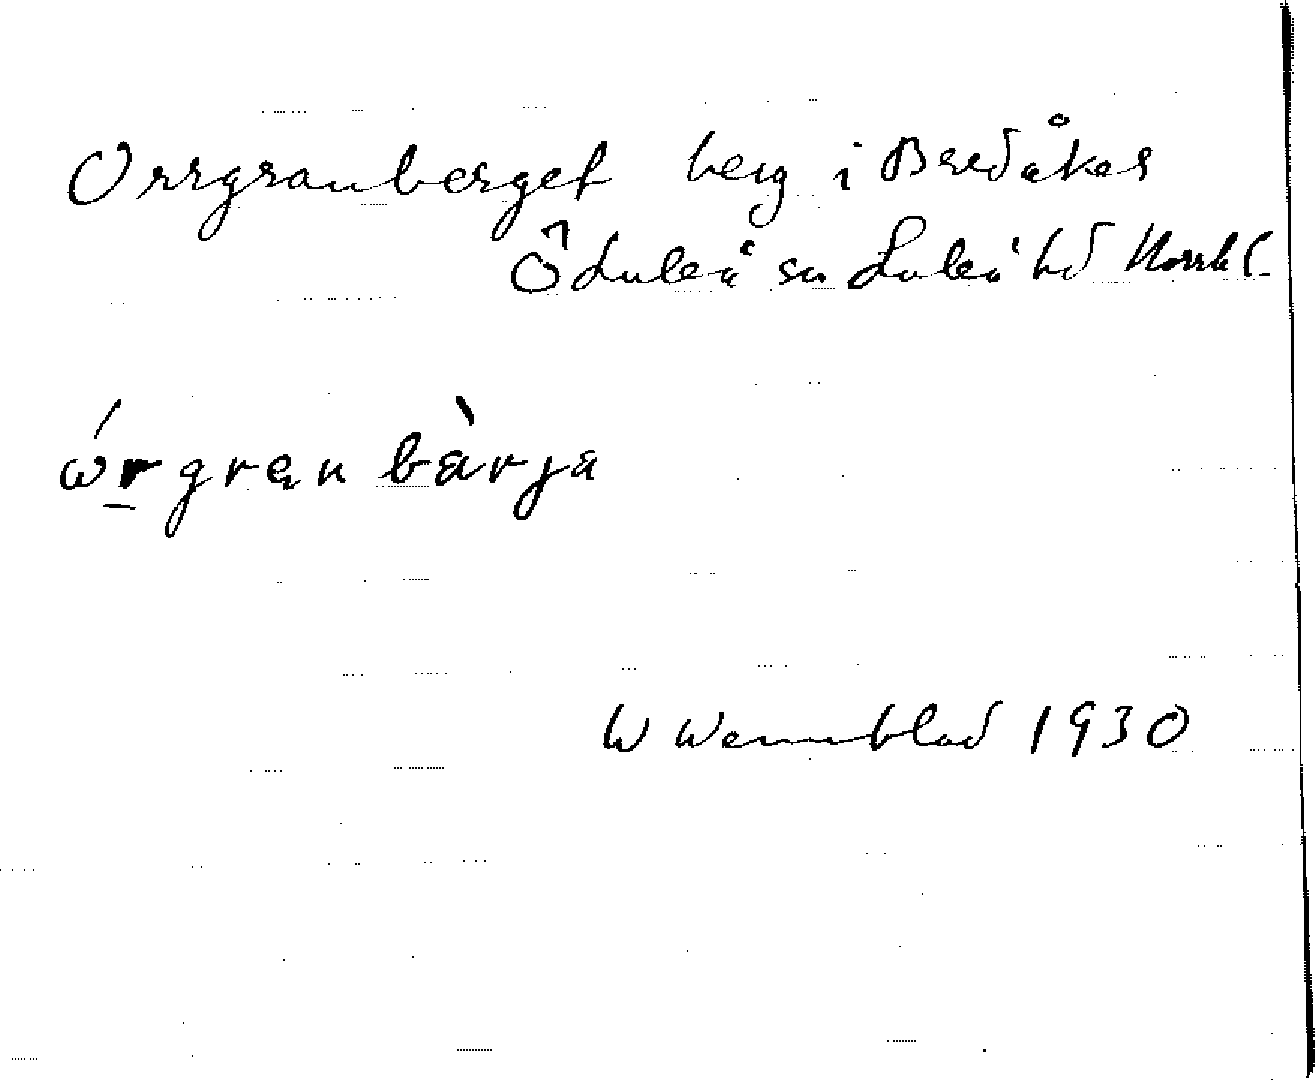 Orrgranberget berg i Bredåker
Ö Luleå sn Luleå hd Norrb l.
ẃrgran bàrja
W Wennblad 1930